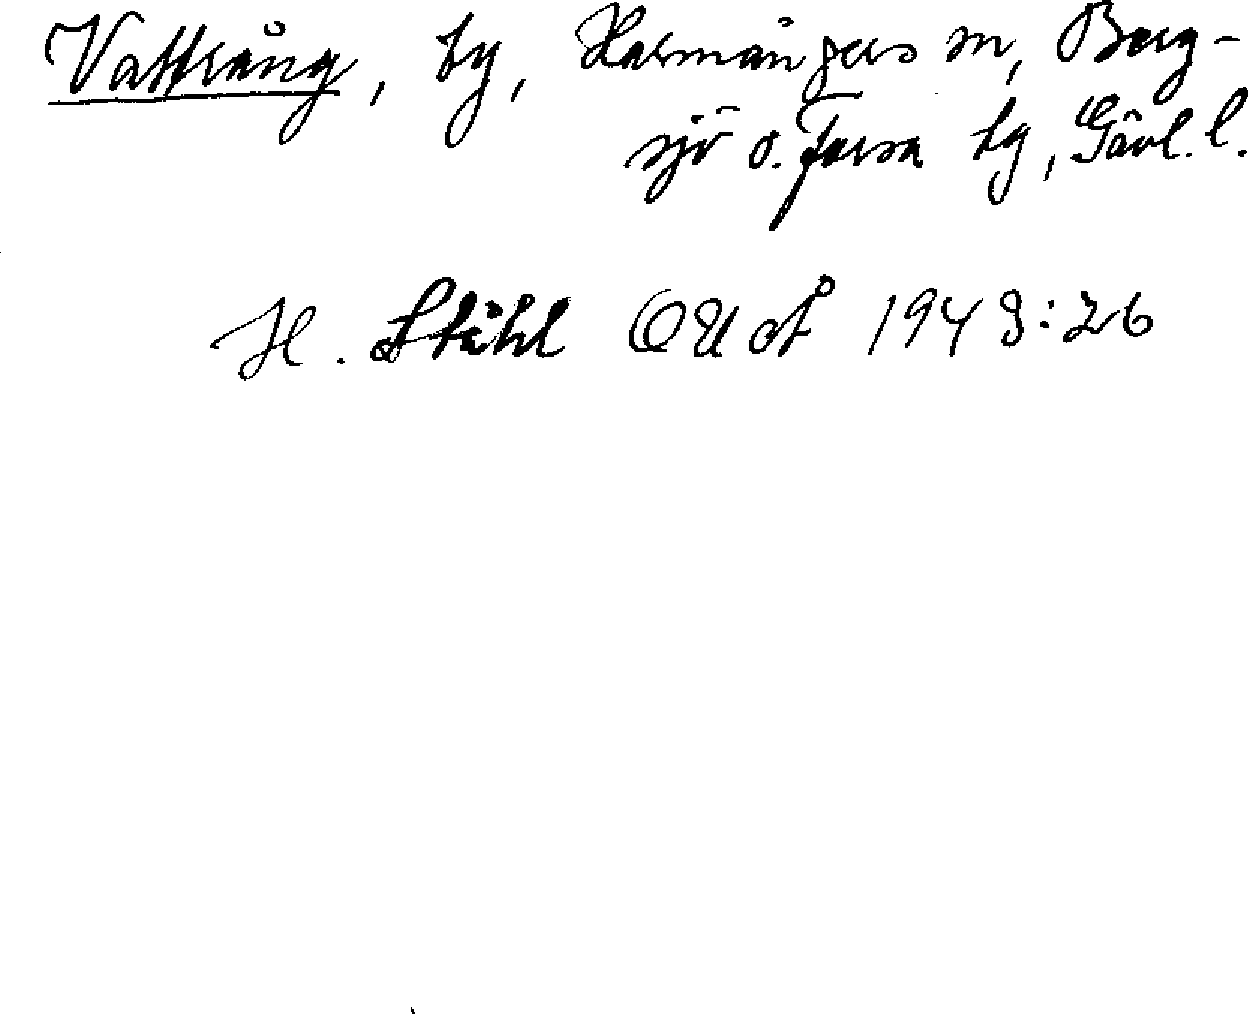 Vattrång, by, Harmångers sn, Berg-
sjö o. Forsa tg, Gävl. l.
H. Ståhl OUÅ 1948:26